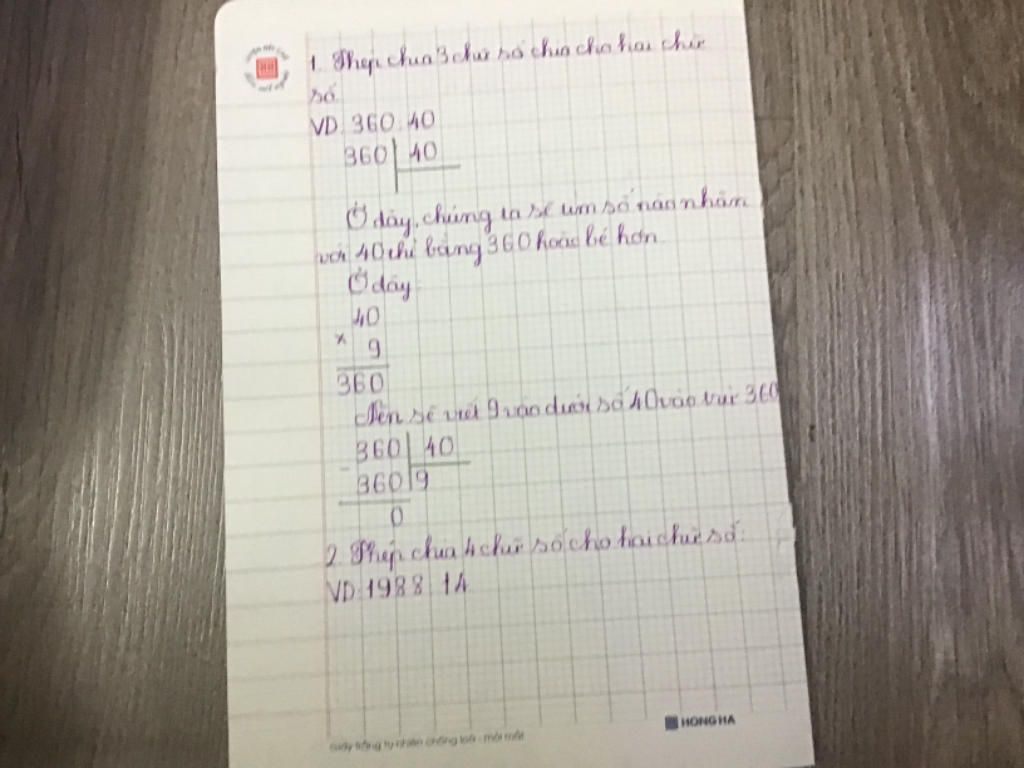 1. Phép chia 3 chữ số chia cho hai chữ
số.
VD: 360:40
360 40
Ở đây, chúng ta sẽ tìm số nào nhân
với 40 chỉ bằng 360 hoặc bé hơn.
Ở đây:
40
× 9
360
Nên sẽ viết 9 vào dưới số 40 và trừ 360
360 40
- 360 9
0
2. Phép chia 4 chữ số cho hai chữ số:
VD: 1988:14
HONG HA
Giấy trắng tự nhiên chống loá - mỏi mắt